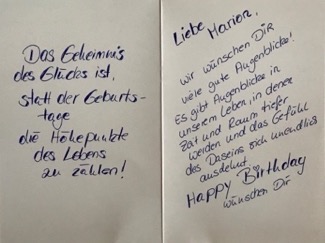 Das Geheimnis
des Glückes ist,
statt der Geburts-
tage
die Höhepunkte
des Lebens
zu zählen!
Liebe Marion,
wir wünschen DIR
viele gute Augenblicke!
Es gibt Augenblicke in
unserem Leben, in denen
Zeit und Raum tiefer
werden und das Gefühl
des Daseins sich unendlich
ausdehnt
Happy Birthday
wünschen Dir